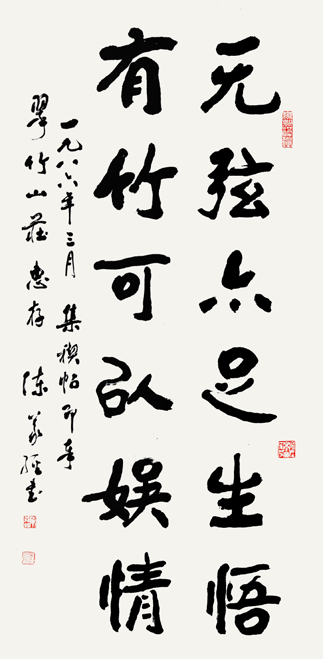 无弦亦足生悟
有竹可以娱情
一九八六年三月 集禊帖即奉
翠竹山庄惠存 陈义经书